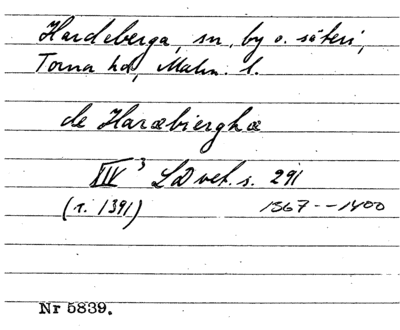 Hardeberga, sn, by o. säteri,
Torna hd, Malm. l.
de Haræbierghæ
XIV 3 LD vet. s. 291
(r. 1391) 1367--1400
Nr 5839.